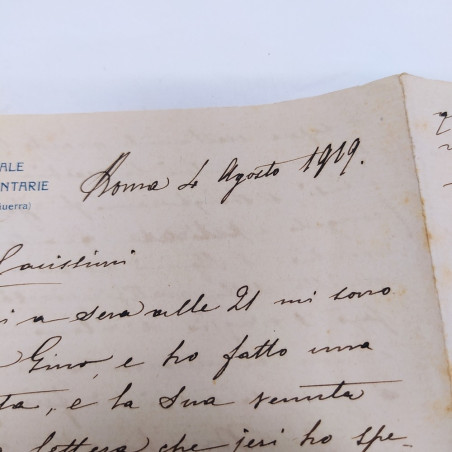 ALE
NTARIE
Guerra)
Roma 4 Agosto 1919.
Carissimi
i a sera alle 21 mi sono
Gino, e ho fatto una
ta, e la sua venuta
lettera che jeri ho spe-